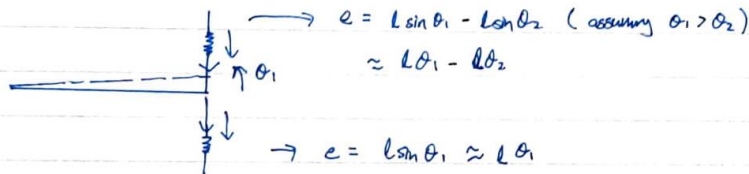 → e = l sin θ₁ - l sin θ₂ (assuming θ₁ > θ₂)
≈ lθ₁ - lθ₂
θ₁
→ e = l sin θ₁ ≈ lθ₁